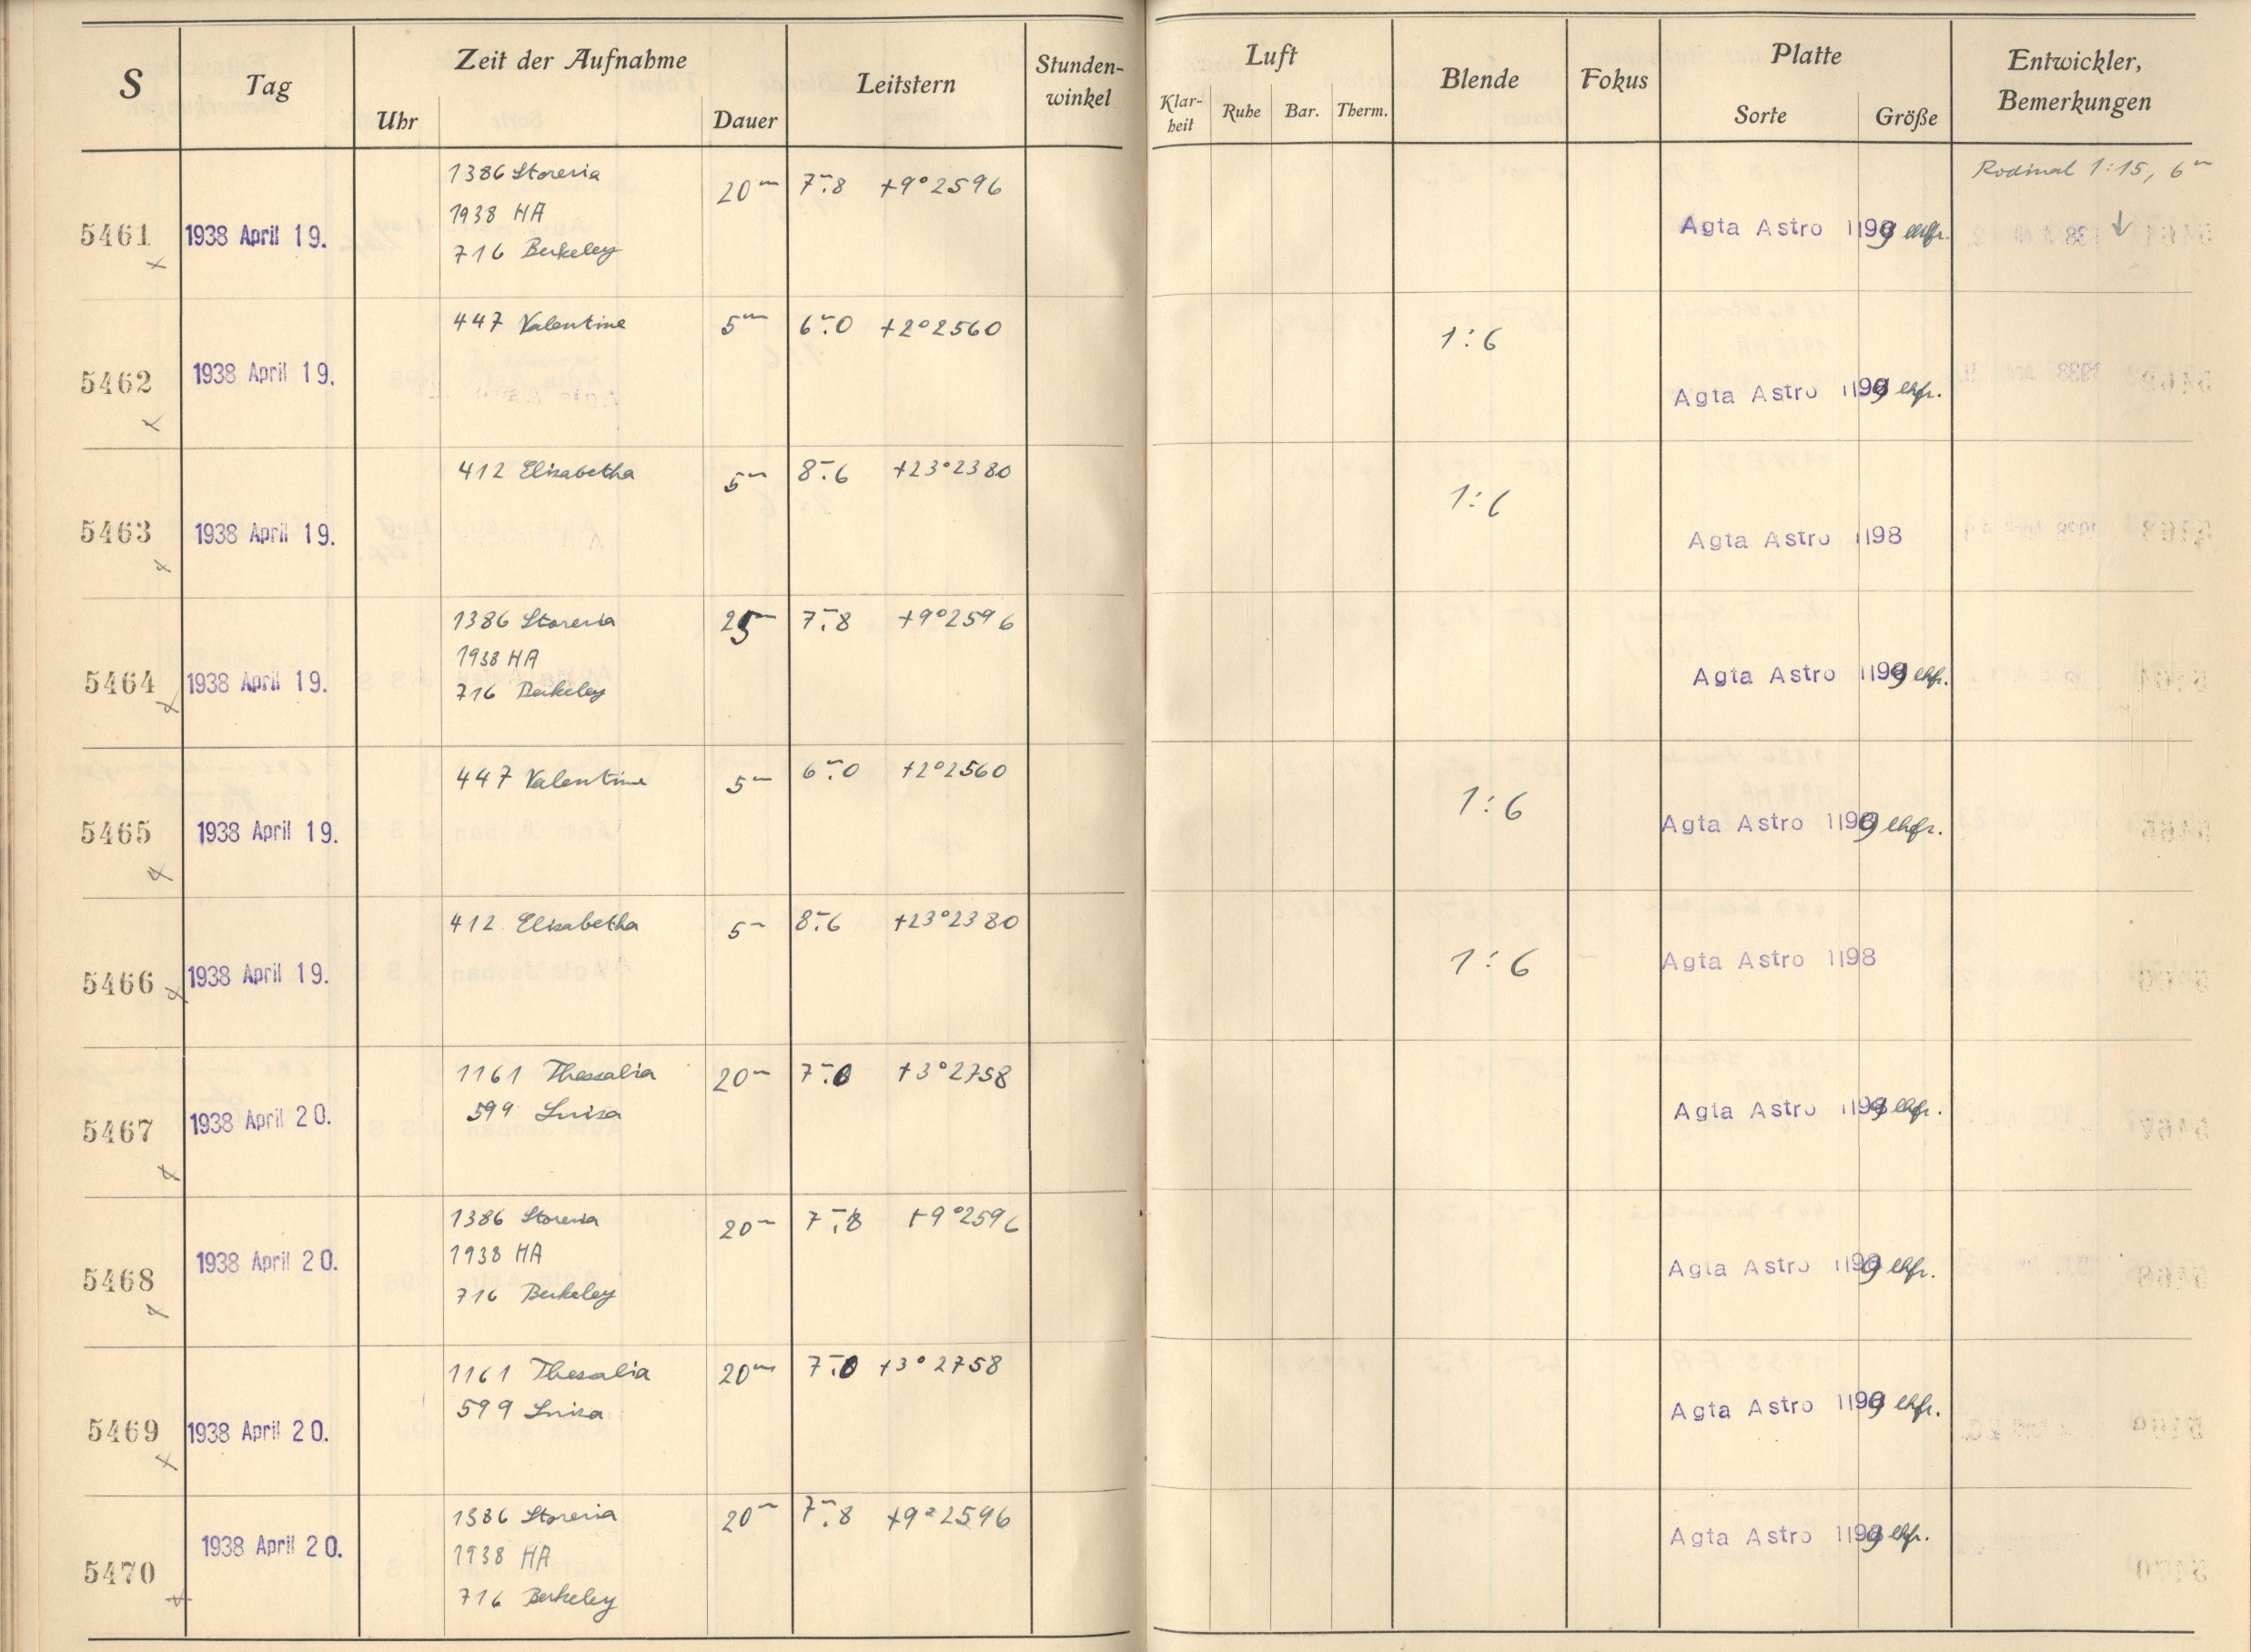 S Tag Zeit der Aufnahme Leitstern Stunden-winkel Luft Blende Fokus Platte Entwickler, Bemerkungen
Uhr Dauer Klar-heit Ruhe Bar. Therm. Sorte Größe
1386 Storeria 20m 7m.8 +9°2596 Rodinal 1:15, 6m
1938 HA
5461 1938 April 19. Agfa Astro 1199 ↓
716 Berkeley
447 Valentine 5m 6m.0 +2°2560 1:6
5462 1938 April 19. Agfa Astro 1199
412 Elisabetha 5m 8m.6 +23°2380 1:6
5463 1938 April 19. Agfa Astro 1198
1386 Storeria 25m 7m.8 +9°2596
1938 HA
5464 1938 April 19. Agfa Astro 1199
716 Berkeley
447 Valentine 5m 6m.0 +2°2560 1:6
5465 1938 April 19. Agfa Astro 1199
412 Elisabetha 5m 8m.6 +23°2380
5466 1938 April 19. 1:6 Agfa Astro 1198
1161 Thessalia 20m 7m.0 +3°2758
599 Luisa
5467 1938 April 20. Agfa Astro 1199
1386 Storeria 20m 7m.8 +9°2596
1938 HA
5468 1938 April 20. Agfa Astro 1199
716 Berkeley
1161 Thessalia 20m 7m.0 +3°2758
599 Luisa
5469 1938 April 20. Agfa Astro 1199
1386 Storeria 20m 7m.8 +9°2596
1938 HA
5470 1938 April 20. Agfa Astro 1199
716 Berkeley